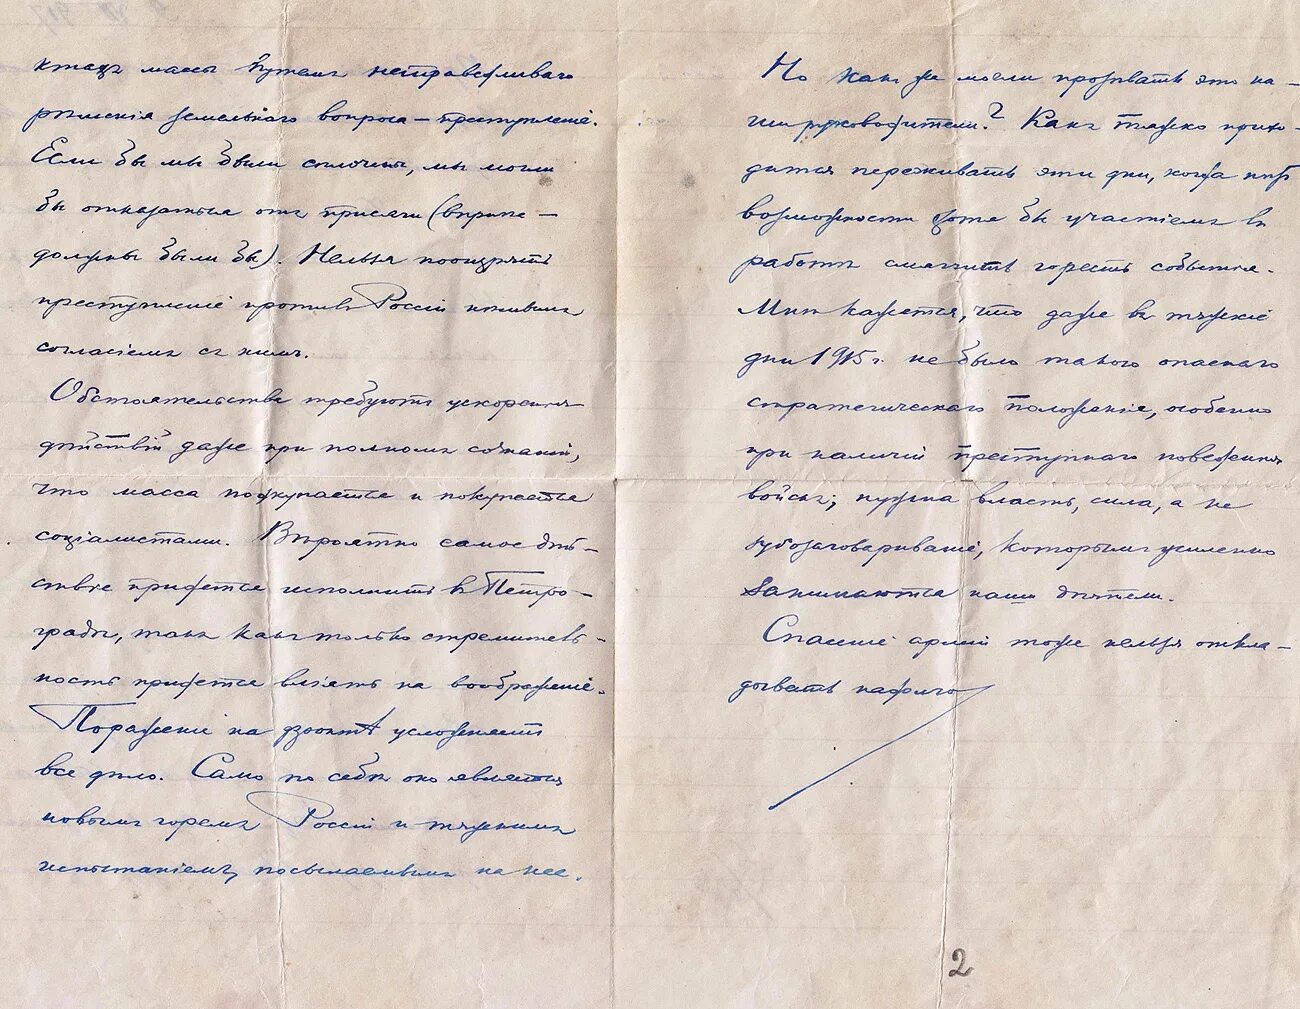 массы путемъ несправедливаго
рѣшенія земельнаго вопроса — преступленіе.
Если бы мы были сплочены, мы могли
бы отказаться отъ присяги (вѣрнѣе —
должны были бы). Нельзя поощрять
преступленіе противъ Россіи
согласіемъ съ нимъ.
Обстоятельства требуютъ ускоренія
дѣйствій даже при полномъ сознаніи,
что масса подкупается и покупается
соціалистами. Вѣроятно самое дѣй-
ствіе придется исполнить въ Петро-
градѣ, такъ какъ только стремитель-
ностью придется вліять на воображеніе.
Пораженіе на фронтѣ усложняетъ
все дѣло. Само по себѣ оно является
новымъ горемъ Россіи и тяжкимъ
испытаніемъ, посылаемымъ на нее.
Но какъ же могли прозѣвать это на-
ши руководители? Какъ тяжко прихо-
дится переживать эти дни, когда нѣтъ
возможности хотя бы участіемъ въ
работѣ смягчить горесть событія.
Мнѣ кажется, что даже въ тяжкіе
дни 1915 г. не было такого опаснаго
стратегическаго положенія, особенно
при наличіи преступнаго поведенія
войскъ; нужна власть, сила, а не
зубозаговариваніе, которымъ усиленно
занимаются наши дѣятели.
Спасеніе арміи тоже нельзя откла-
дывать надолго
2